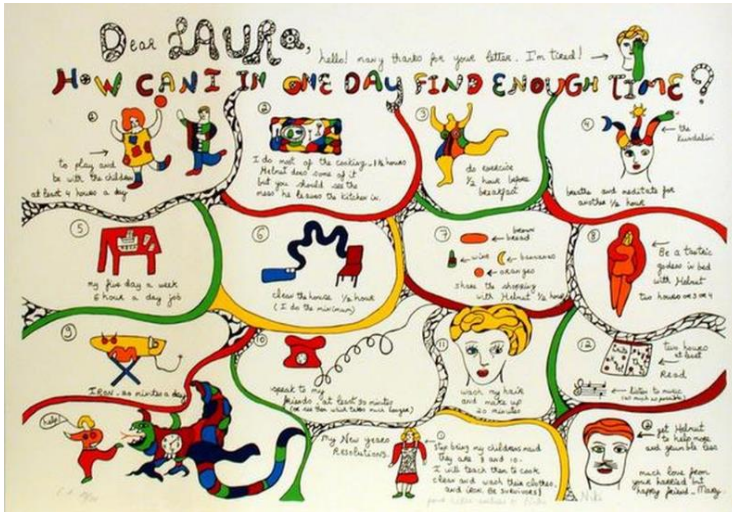 Dear LAURA,
hello! many thanks for your letter. I'm tired!
HOW CAN I IN ONE DAY FIND ENOUGH TIME?
①
to play and
be with the children
at least 4 hours a day
②
I do most of the cooking - 1½ hours
Helmut does some of it
but you should see the
mess he leaves the kitchen in.
③
do exercise
½ hour before
breakfast
④
the
kundalini
breathe and meditate for
another ½ hour
⑤
my five day a week
6 hour a day job
⑥
clean the house ½ hour
(I do the minimum)
⑦
brown
bread
wine
bananas
oranges
share the shopping
with Helmut ½ hour
⑧
Be a tantric
godess in bed
with Helmut
two hours or 3 or 4
⑨
IRON - 20 minutes a day
⑩
speak to my
friends at least 30 minutes
(or see them which takes much longer)
⑪
wash my hair
and make up
20 minutes
⑫
two hours
at least
Read
listen to music
(as much as possible)
help!
My New years
Resolutions.
①
stop being my children's maid
they are 8 and 10.
I will teach them to cook
clean and wash their clothes
and iron. Be survivors!
②
get Helmut
to help more
and grumble less
much love from
your harried but
happy friend - Mary
Niki